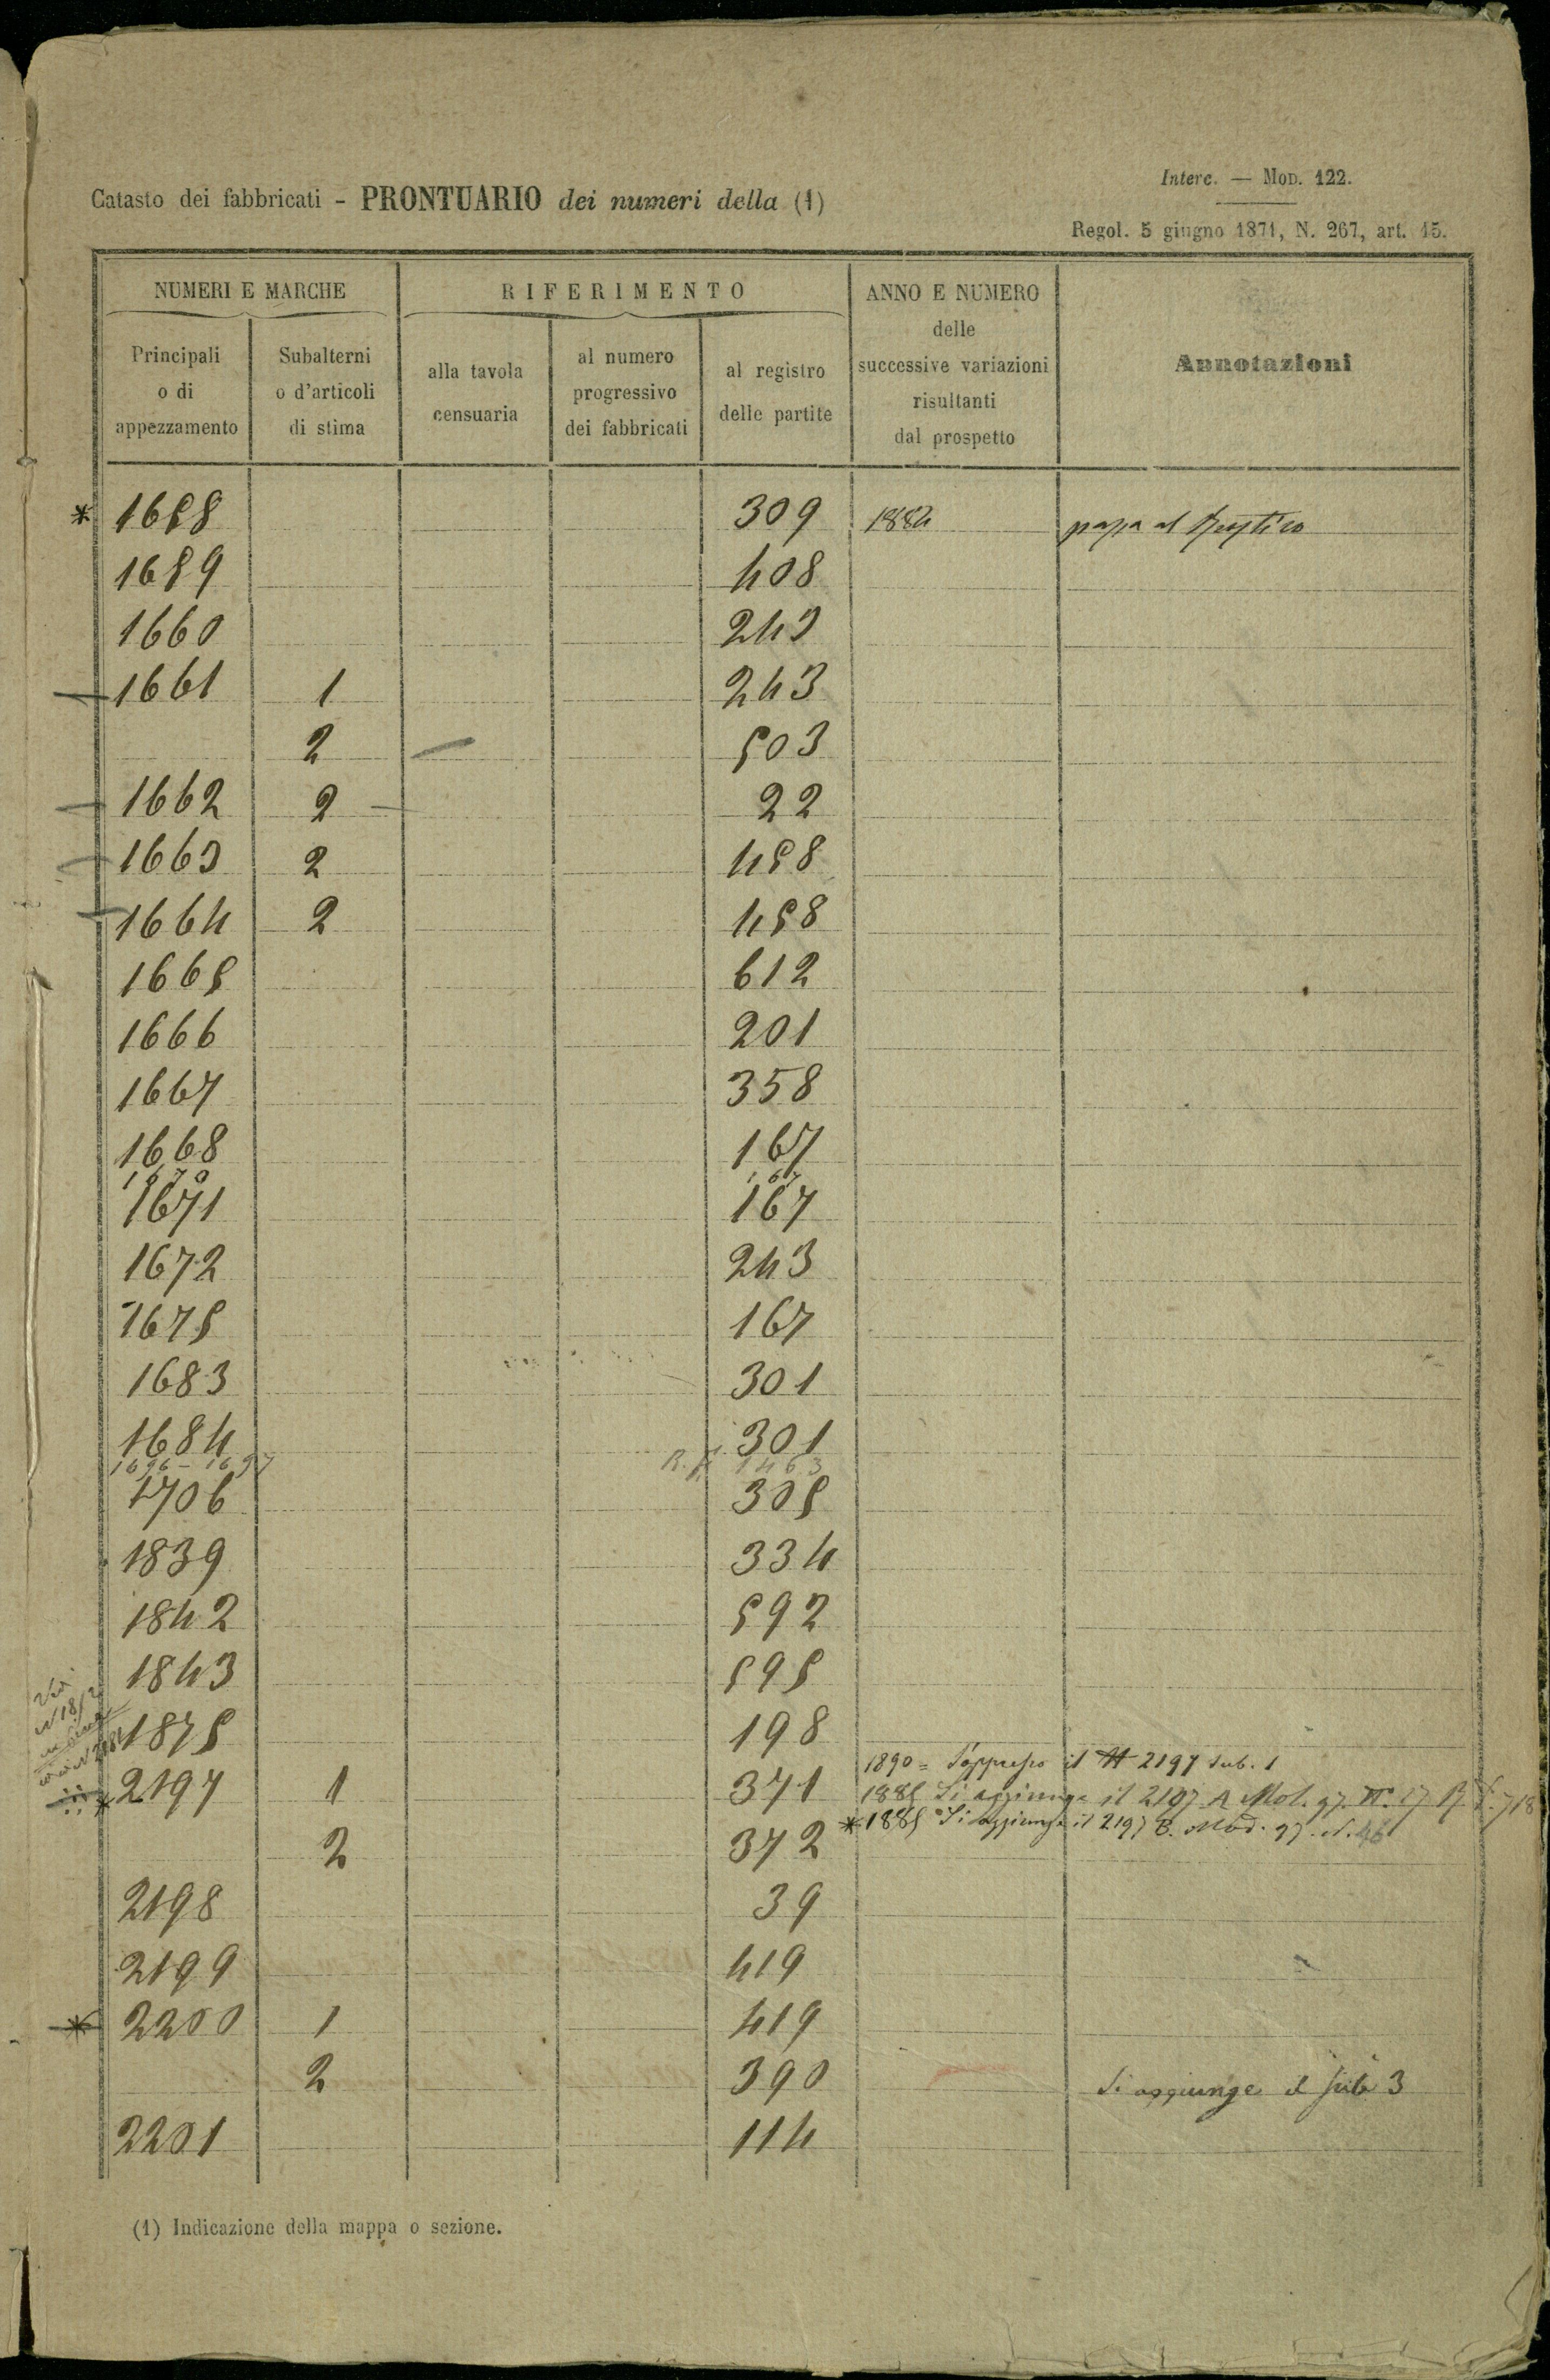 Interc. — Mod. 122.
Catasto dei fabbricati - PRONTUARIO dei numeri della (1)
Regol. 5 giugno 1871, N. 267, art. 15.
NUMERI E MARCHE RIFERIMENTO ANNO E NUMERO delle successive variazioni risultanti dal prospetto Annotazioni
Principali o di appezzamento Subalterni o d'articoli di stima alla tavola censuaria al numero progressivo dei fabbricati al registro delle partite
* 1658 309 1884 passa al Rustico
1659 408
1660 243
1661 1 243
2 503
1662 2 22
1663 2 458
1664 2 458
1665 612
1666 201
1667 358
1668 167
1670 167
1671 167
1672 243
1675 167
1683 301
1684 301
1696 - 1697 1463
1706 305
1839 334
1842 592
1843 595
1875 198
1890 = Soppresso il N 2197 sub. 1
* 2197 1 371 1885 Si aggiunge il 2197 A Mod. 97. N. 17 718
* 1885 Si aggiunge il 2197 B. Mod. 97. N. 46
2 372
2198 39
2199 419
* 2200 1 419
2 390 Si aggiunge il sub 3
2201 114
(1) Indicazione della mappa o sezione.